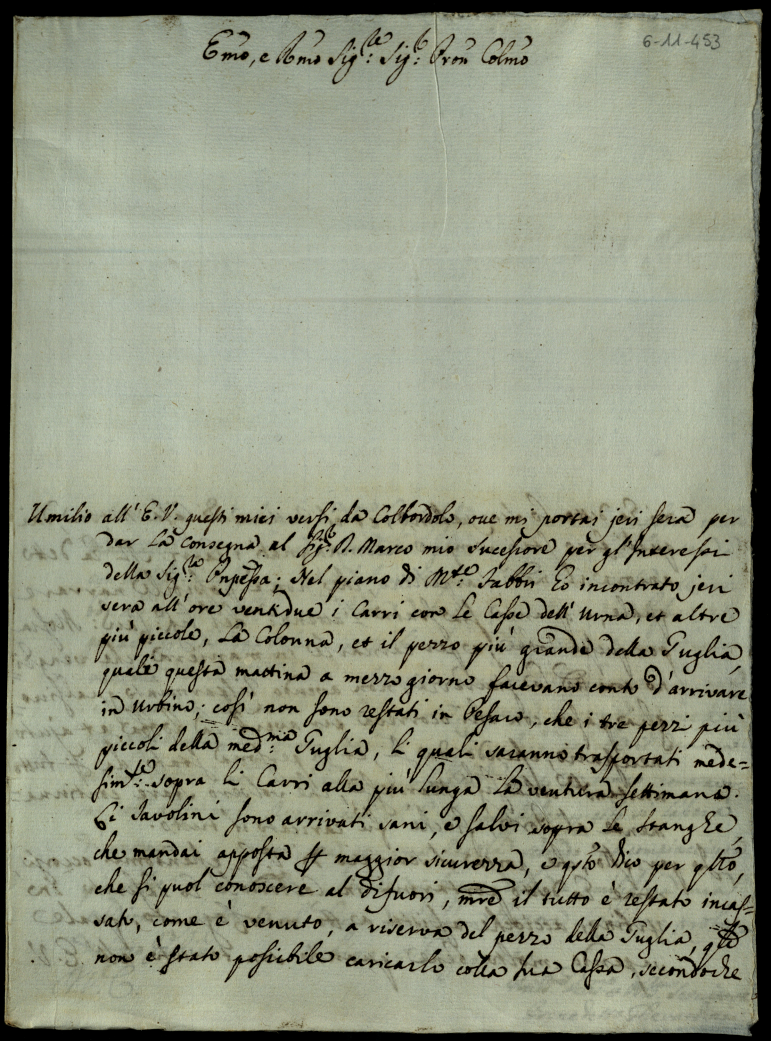 6-11-453
Emo, e Rmo Sigre: Sigr: Pron Colmo
Umilio all' E. V. questi miei versi da Colbordolo, ove mi portai jeri sera per
dar la consegna al Sigr: D. Marco mio sucessore per gl'Interessi
della Sigra Pnpessa; Nel piano di Mte Fabbri Eo incontrato jeri
sera all'ore ventidue i Carri con le Casse dell'Urna, et altre
più piccole, la Colonna, et il pezzo più grande della Guglia,
quali questa mattina a mezzo giorno facevano conto d'arrivare
in Urbino; così non sono restati in Pesaro, che i tre pezzi più
piccoli della medma: Guglia, li quali saranno trasportati mede=
simte: sopra li Carri alla più lunga la ventura settimana.
Li Tavolini sono arrivati sani, e salvi sopra le stanghe,
che mandai apposta p maggior sicurezza, e qsto dico per qllo,
che si puol conoscere al difuori, mre il tutto è restato incas=
sato, come è venuto, a riserva del pezzo della Guglia, qle
non è stato possibile caricarlo colla sua Cassa, secondoche